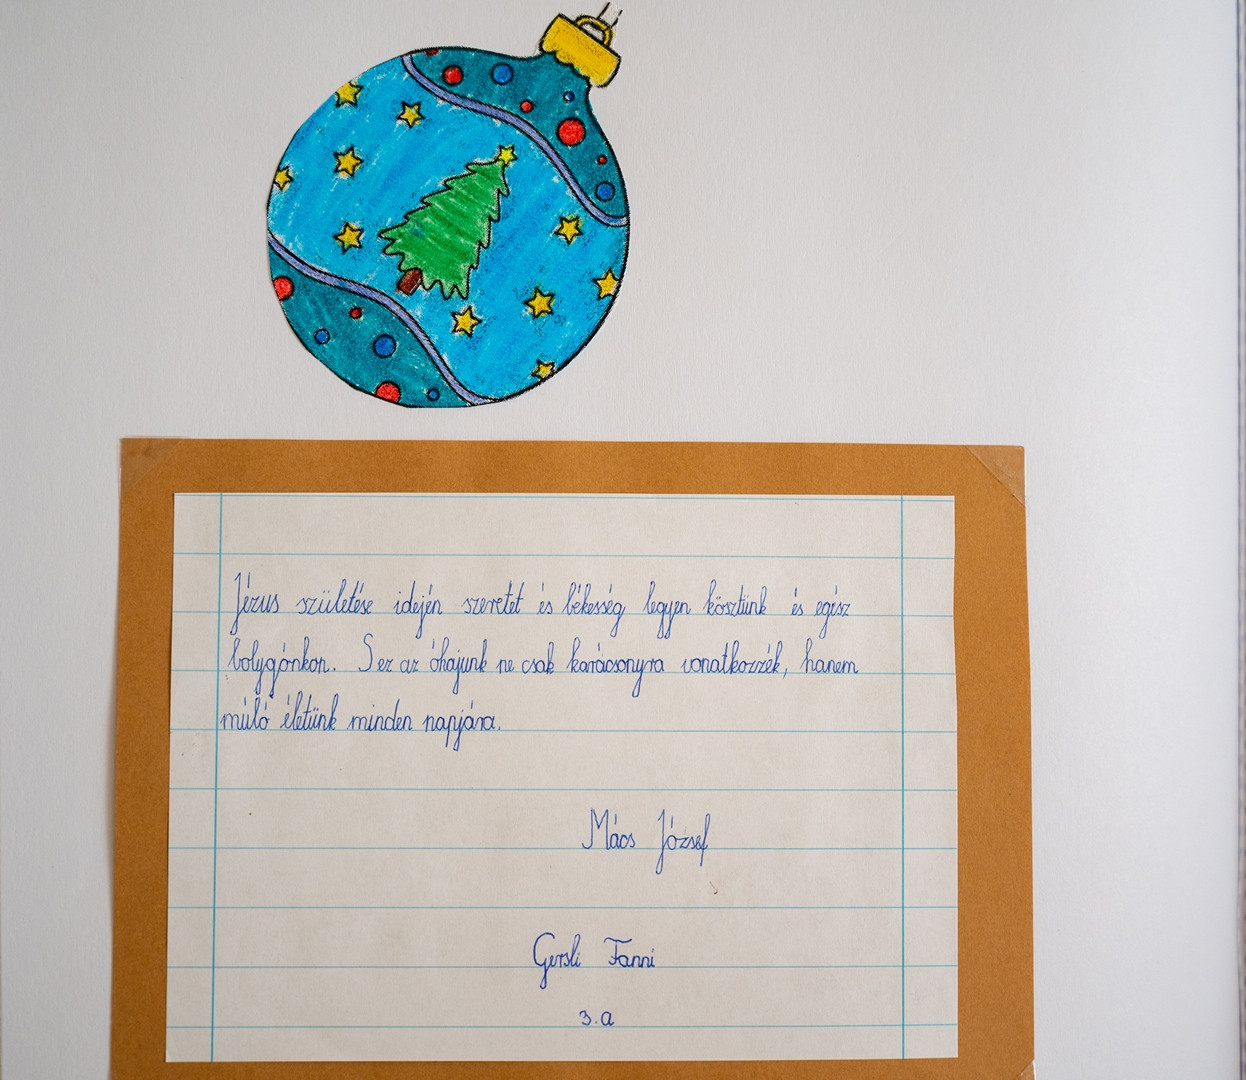 Jézus születése idején szeretet és békesség legyen köztünk és egész
bolygónkon. S ez az óhajunk ne csak karácsonyra vonatkozzék, hanem
múló életünk minden napjára.
Mács József
Gersli Fanni
3.a